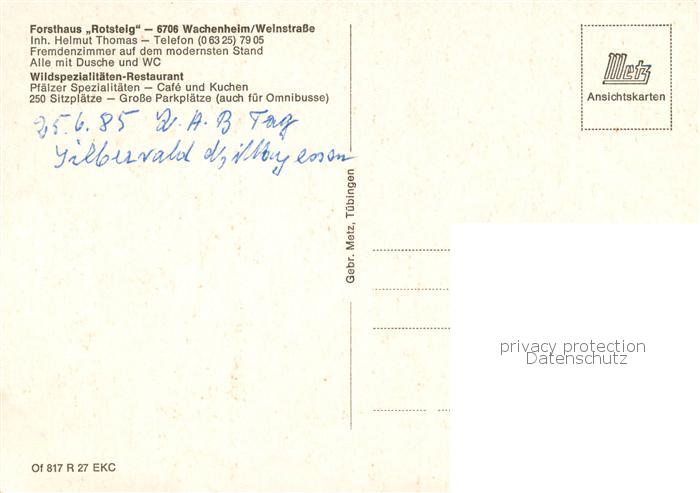 Forsthaus „Rotsteig“ — 6706 Wachenheim/Weinstraße
Inh. Helmut Thomas — Telefon (0 63 25) 79 05
Fremdenzimmer auf dem modernsten Stand
Alle mit Dusche und WC
Wildspezialitäten-Restaurant
Pfälzer Spezialitäten — Café und Kuchen
250 Sitzplätze — Große Parkplätze (auch für Omnibusse)
25.6.85 A. B Tag
Silberwald
Metz
Ansichtskarten
Gebr. Metz, Tübingen
privacy protection
Datenschutz
Of 817 R 27 EKC